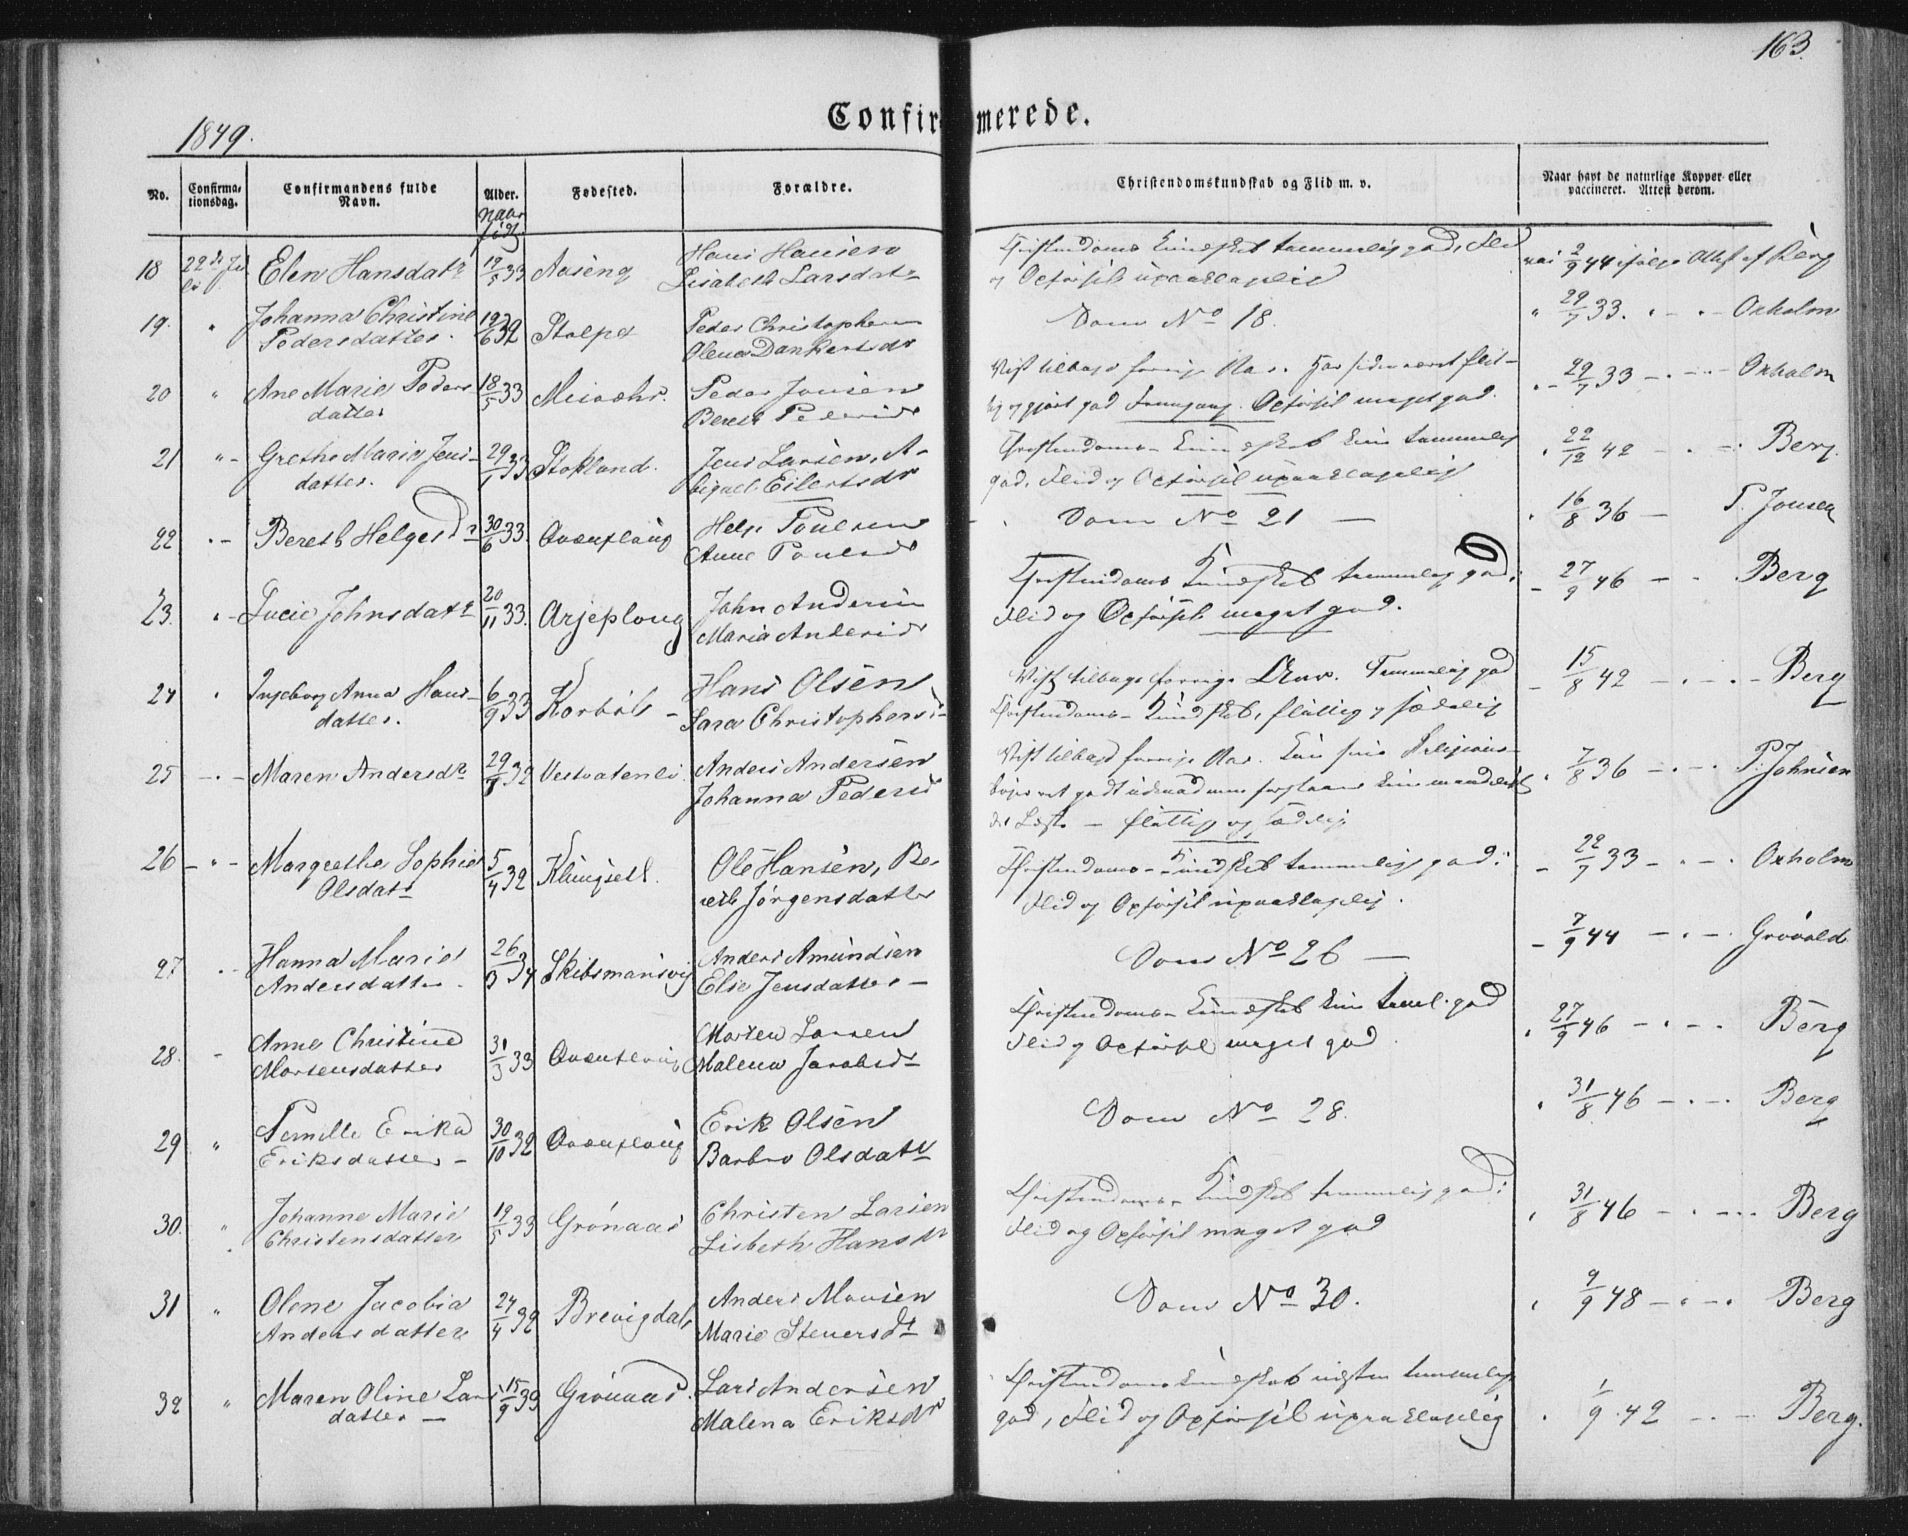 163.
Confirmerede.
1849.
No.
Confirma-
tionsdag.
Confirmandens fulde
Navn.
Alder.
naar
født
Fødested.
Forældre.
Christendomskundskab og Flid m. v.
Naar havt de naturlige Kopper eller
vaccineret. Attest derom.
18 22de Ju
li Elen Hansdatr 19/5 33 Aaseng Hans Hansen
Lisabeth Larsdatr
Christendoms Kundskab temmelig god, Flid
og Opførsel upaaklagelig
vac 2/9 44 ifølge Attest af Berg
19. " Johanna Christine
Pedersdatter. 19/6 32 Stolpe Peder Christophersen
Olena Dankertsdr
Som No 18.
" 29/7 33. " - " - Oxholm
20 " Ane Marie Peders
datter 18/5 33 Peder Jensen
Bereth Pedersdr
Vist tilbage forrige Aar. Har siden været flit-
tig og gjort god Fremgang. Opførsel meget god.
" - 29/7 33 - " - Oxholm
21 " - Grethe Marie Jens-
datter. 29/1 33 Stokland. Jens Larsen, A-
bigael Eilertsdr
Christendoms-Kundskab kun temmelig
god, Flid og Opførsel upaaklagelig
" 22/12 42 - " - Berg.
22 " - Bereth Helgesdr 30/6 33. Helge Poulsen
Anne Poulsdr
Som No 21 -
" 16/8 36 - P. Jonsen
23. " - Lucie Johnsdatr 20/11 33. Arjeploug John Andersen
Maria Andersdr
Christendoms Kundskab temmelig god;
Flid og Opførsel meget god.
- 27/9 46 - " Berg
24 " Ingeborg Anna Hans-
datter. 6/9 33 Hans Olsen
Sara Christophersd-
Vist tilbage forrige Aar. Temmelig god
Christendoms-Kundskab, flittig og sædelig
- 15/8 42 - " - " - Berg
25 - " - Maren Andersdr 29/8 32 Vestvatenli Anders Andersen
Johanna Pedersd
Vist tilbage forrige Aar. Kan sine Religions-
bøger ret godt udenad men forstaaer kun
det Læste - flittig og sædelig
" 7/8 36 - " - P. Johnsen
26 - " - Margrethe Sophie
Olsdatr 5/4 32 Klungset. Ole Hansen, Be-
reth Jørgensdatter
Christendoms-Kundskab temmelig god;
Flid og Opførsel upaaklagelig.
- 22/7 33 - " - Oxholm
27 " - Hanna Marie
Andersdatter. 26/3 34 Skibsmansvig Anders Amundsen
Else Jensdatter -
Som No 26 -
- 7/9 44 - " - Grøvold
28. - Anne Christine
Mortensdatter 31/3 33 Morten Larsen
Malena Jacobsdr
Christendoms-Kundskab kun teml. god
Flid og Opførsel meget god.
" 27/9 46 - " - Berg
29 " Pernille Erika
Eriksdatter - 30/10 32 Erik Olsen
Barbro Olsdatr
Som No 28.
" 31/8 46 - " - Berg
30. " Johanne Marie
Christensdatter 19/5 33 Grønaas Christen Larsen
Lisbeth Hansdr
Christendoms-Kundskab temmelig god;
Flid og Opførsel meget god
" 31/8 46 - " - Berg
31 " Olene Jacobia
Andersdatter 24/4 32 Brevigdal Anders Monsen
Marie Steversdt
Som No 30.
" 9/9 48 - " - Berg
32 " Maren Oline Lars
datter - 15/9 33 Grønaas. Lars Andersen
Malena Eriksdr
Christendomskundskab næsten temmelig
god, Flid og Opførsel upaaklagelig
" 1/9 42 - " - Berg.